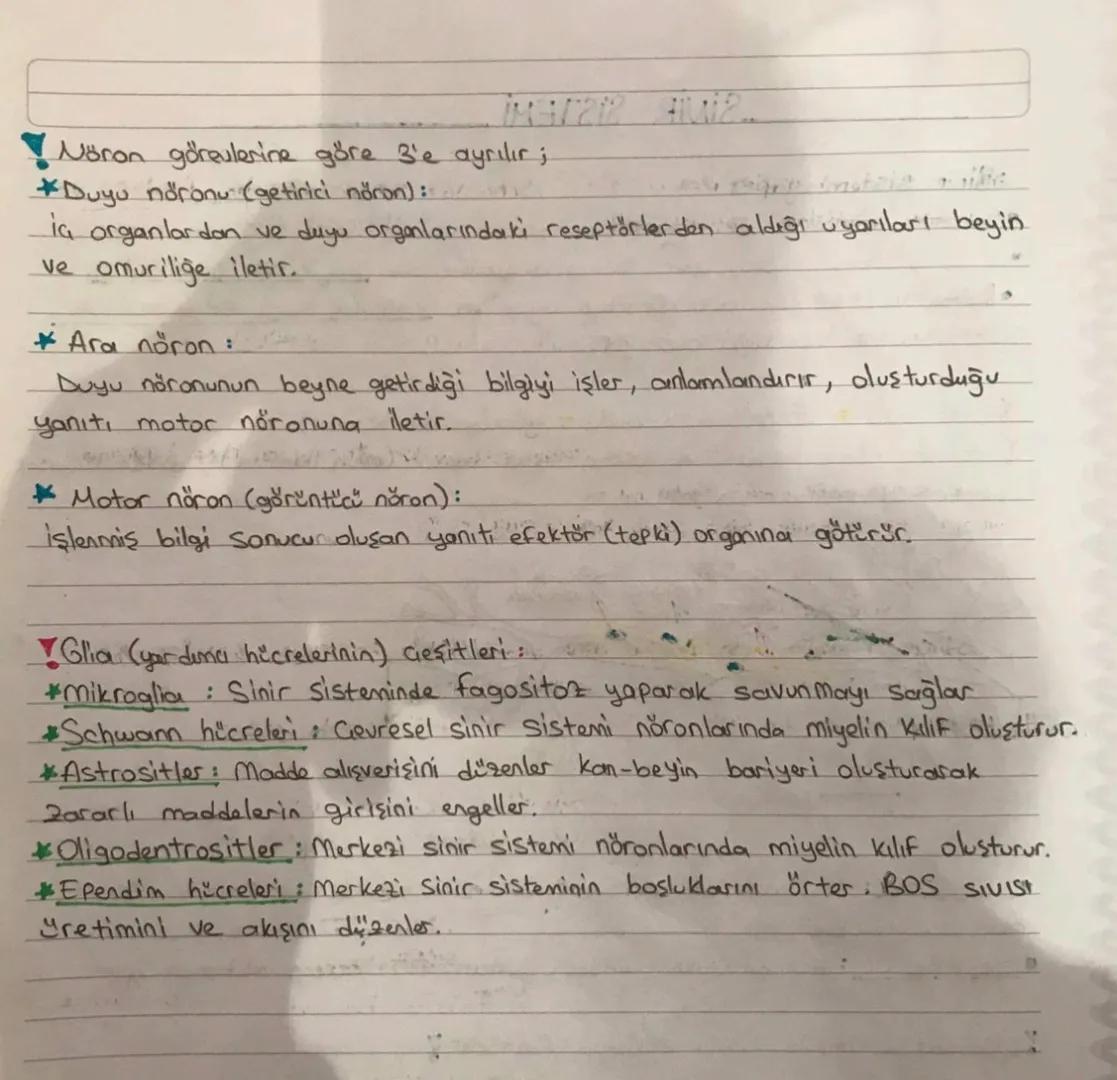 ! Nöron görevlerine göre 3'e ayrılır;
* Duyu nöronu (getirici nöron):
iç organlardan ve duyu organlarındaki reseptörlerden aldığı uyarıları beyin
ve omuriliğe iletir.
* Ara nöron :
Duyu nöronunun beyne getirdiği bilgiyi işler, anlamlandırır, oluşturduğu
yanıtı motor nöronuna iletir.
* Motor nöron (görüntücü nöron):
işlenmiş bilgi sonucu oluşan yanıtı efektör (tepki) organına götürür.
! Glia (yardımcı hücrelerinin) çeşitleri :
* Mikroglia : Sinir sisteminde fagositoz yaparak savunmayı sağlar
* Schwann hücreleri : Çevresel sinir sistemi nöronlarında miyelin kılıf oluşturur.
* Astrositler : Madde alışverişini düzenler kan-beyin bariyeri oluşturarak
zararlı maddelerin girişini engeller.
* Oligodentrositler : Merkezi sinir sistemi nöronlarında miyelin kılıf oluşturur.
* Ependim hücreleri : Merkezi sinir sisteminin boşluklarını örter. BOS sıvısı
üretimini ve akışını düzenler.